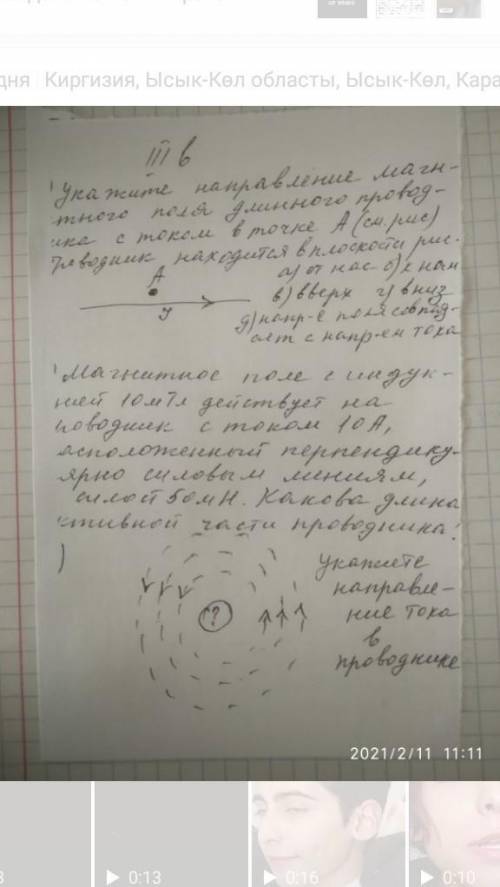 дня Киргизия, Ысык-Көл областы, Ысык-Көл, Кара
III в
Укажите направление магн-
тного поля длинного провод-
ика с током в точке А (см. рис)
Проводник находится в плоскости рис.
А
а) от нас б) к нам
в) вверх г) вниз
д) напр-е поля совпад-
ает с напр-ем тока
Магнитное поле с индук-
цией 10мТл действует на
роводник с током 10А,
асположенный перпендику-
лярно силовым линиям,
силой 50мН. Какова длина
ктивной части проводника?
)
?
Укажите
направле-
ние тока
в
проводнике
2021/2/11 11:11
0:13
0:16
0:10